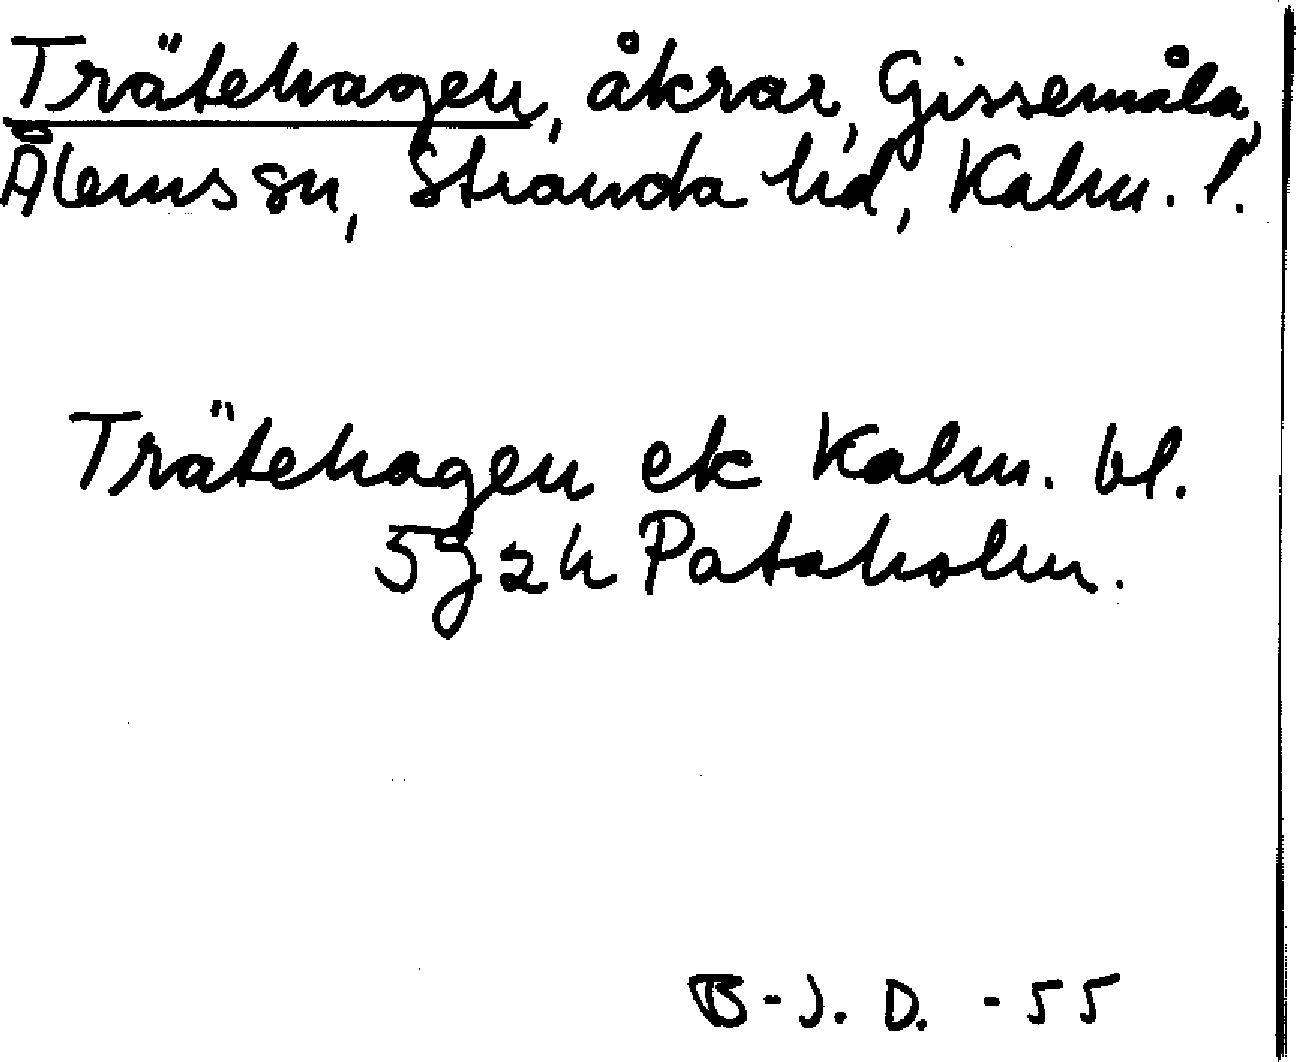 Trätehagen, åkrar, Gissemåla,
Ålems sn, Stranda hd, Kalm. l.
Trätehagen ek Kalm. bl.
5g2h Pataholm.
B-J. D. -55